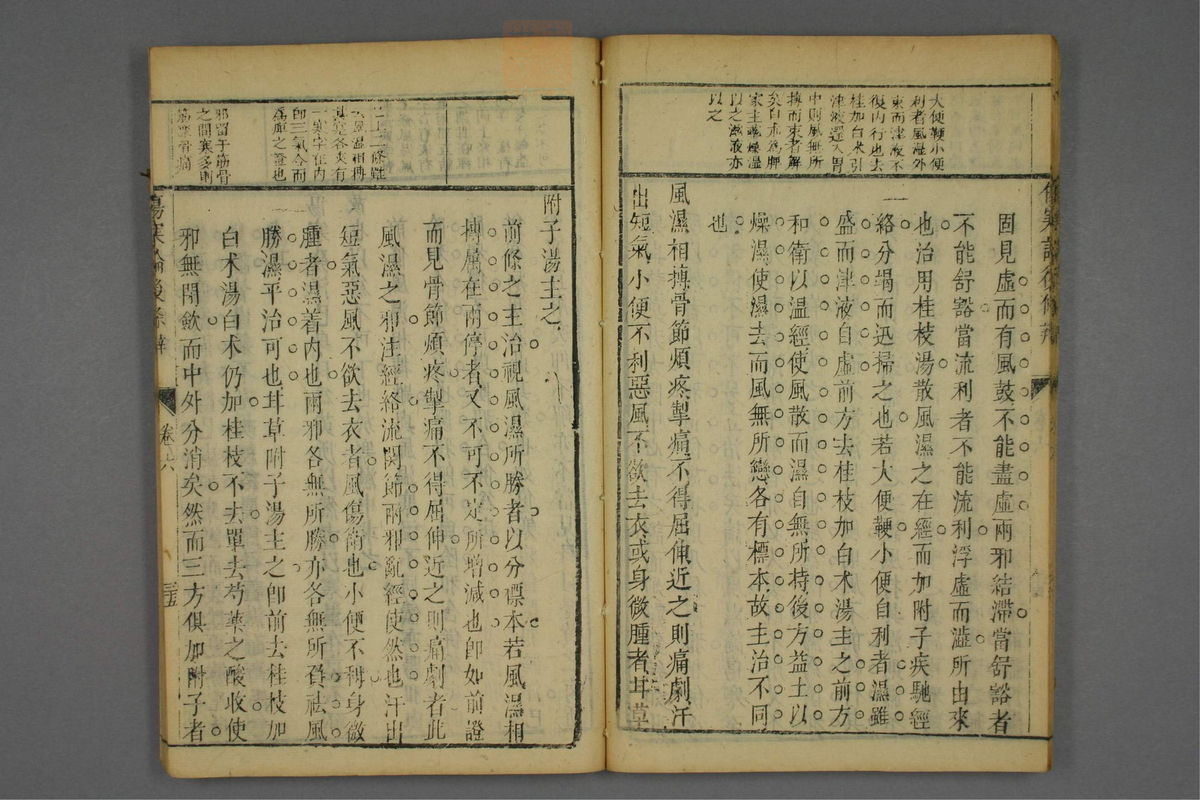 大便鞕小便
利者風濕外
束而津液不
復内行也去
桂加白术引
津液還入胃
中則風無所
摶而束者解
矣白术為脾
家主藥燥濕
以之滋液亦
以之
固見虛而有風鼓不能盡虛兩邪結滯當舒豁者
不能舒豁當流利者不能流利浮虛而澁所由來
也治用桂枝湯散風濕之在經而加附子疾馳經
絡分竭而迅掃之也若大便鞕小便自利者濕雖
盛而津液自虛前方去桂枝加白术湯主之前方
和衛以温經使風散而濕自無所持後方益土以
燥濕使濕去而風無所戀各有標本故主治不同
也
風濕相摶骨節煩疼掣痛不得屈伸近之則痛劇汗
出短氣小便不利惡風不欲去衣或身微腫者甘草
附子湯主之
前條之主治視風濕所勝者以分標本若風濕相
摶屬在兩停者又不可不定所增減也即如前證
而見骨節煩疼掣痛不得屈伸近之則痛劇者此
風濕之邪注經絡流関節兩邪亂經使然也汗出
短氣惡風不欲去衣者風傷衛也小便不利身微
腫者濕着内也兩邪各無所勝亦各無所負祛風
勝濕平治可也甘草附子湯主之即前去桂枝加
白术湯白术仍加桂枝不去單去芍藥之酸收使
邪無閉歛而中外分消矣然而三方俱加附子者
二條雖
風濕相摶
其實各夾有
一寒字在内
即三氣合而
為痺之證也
邪留于筋骨
之間寒多則
筋攣骨痛
傷寒論後條辨
卷六
三五